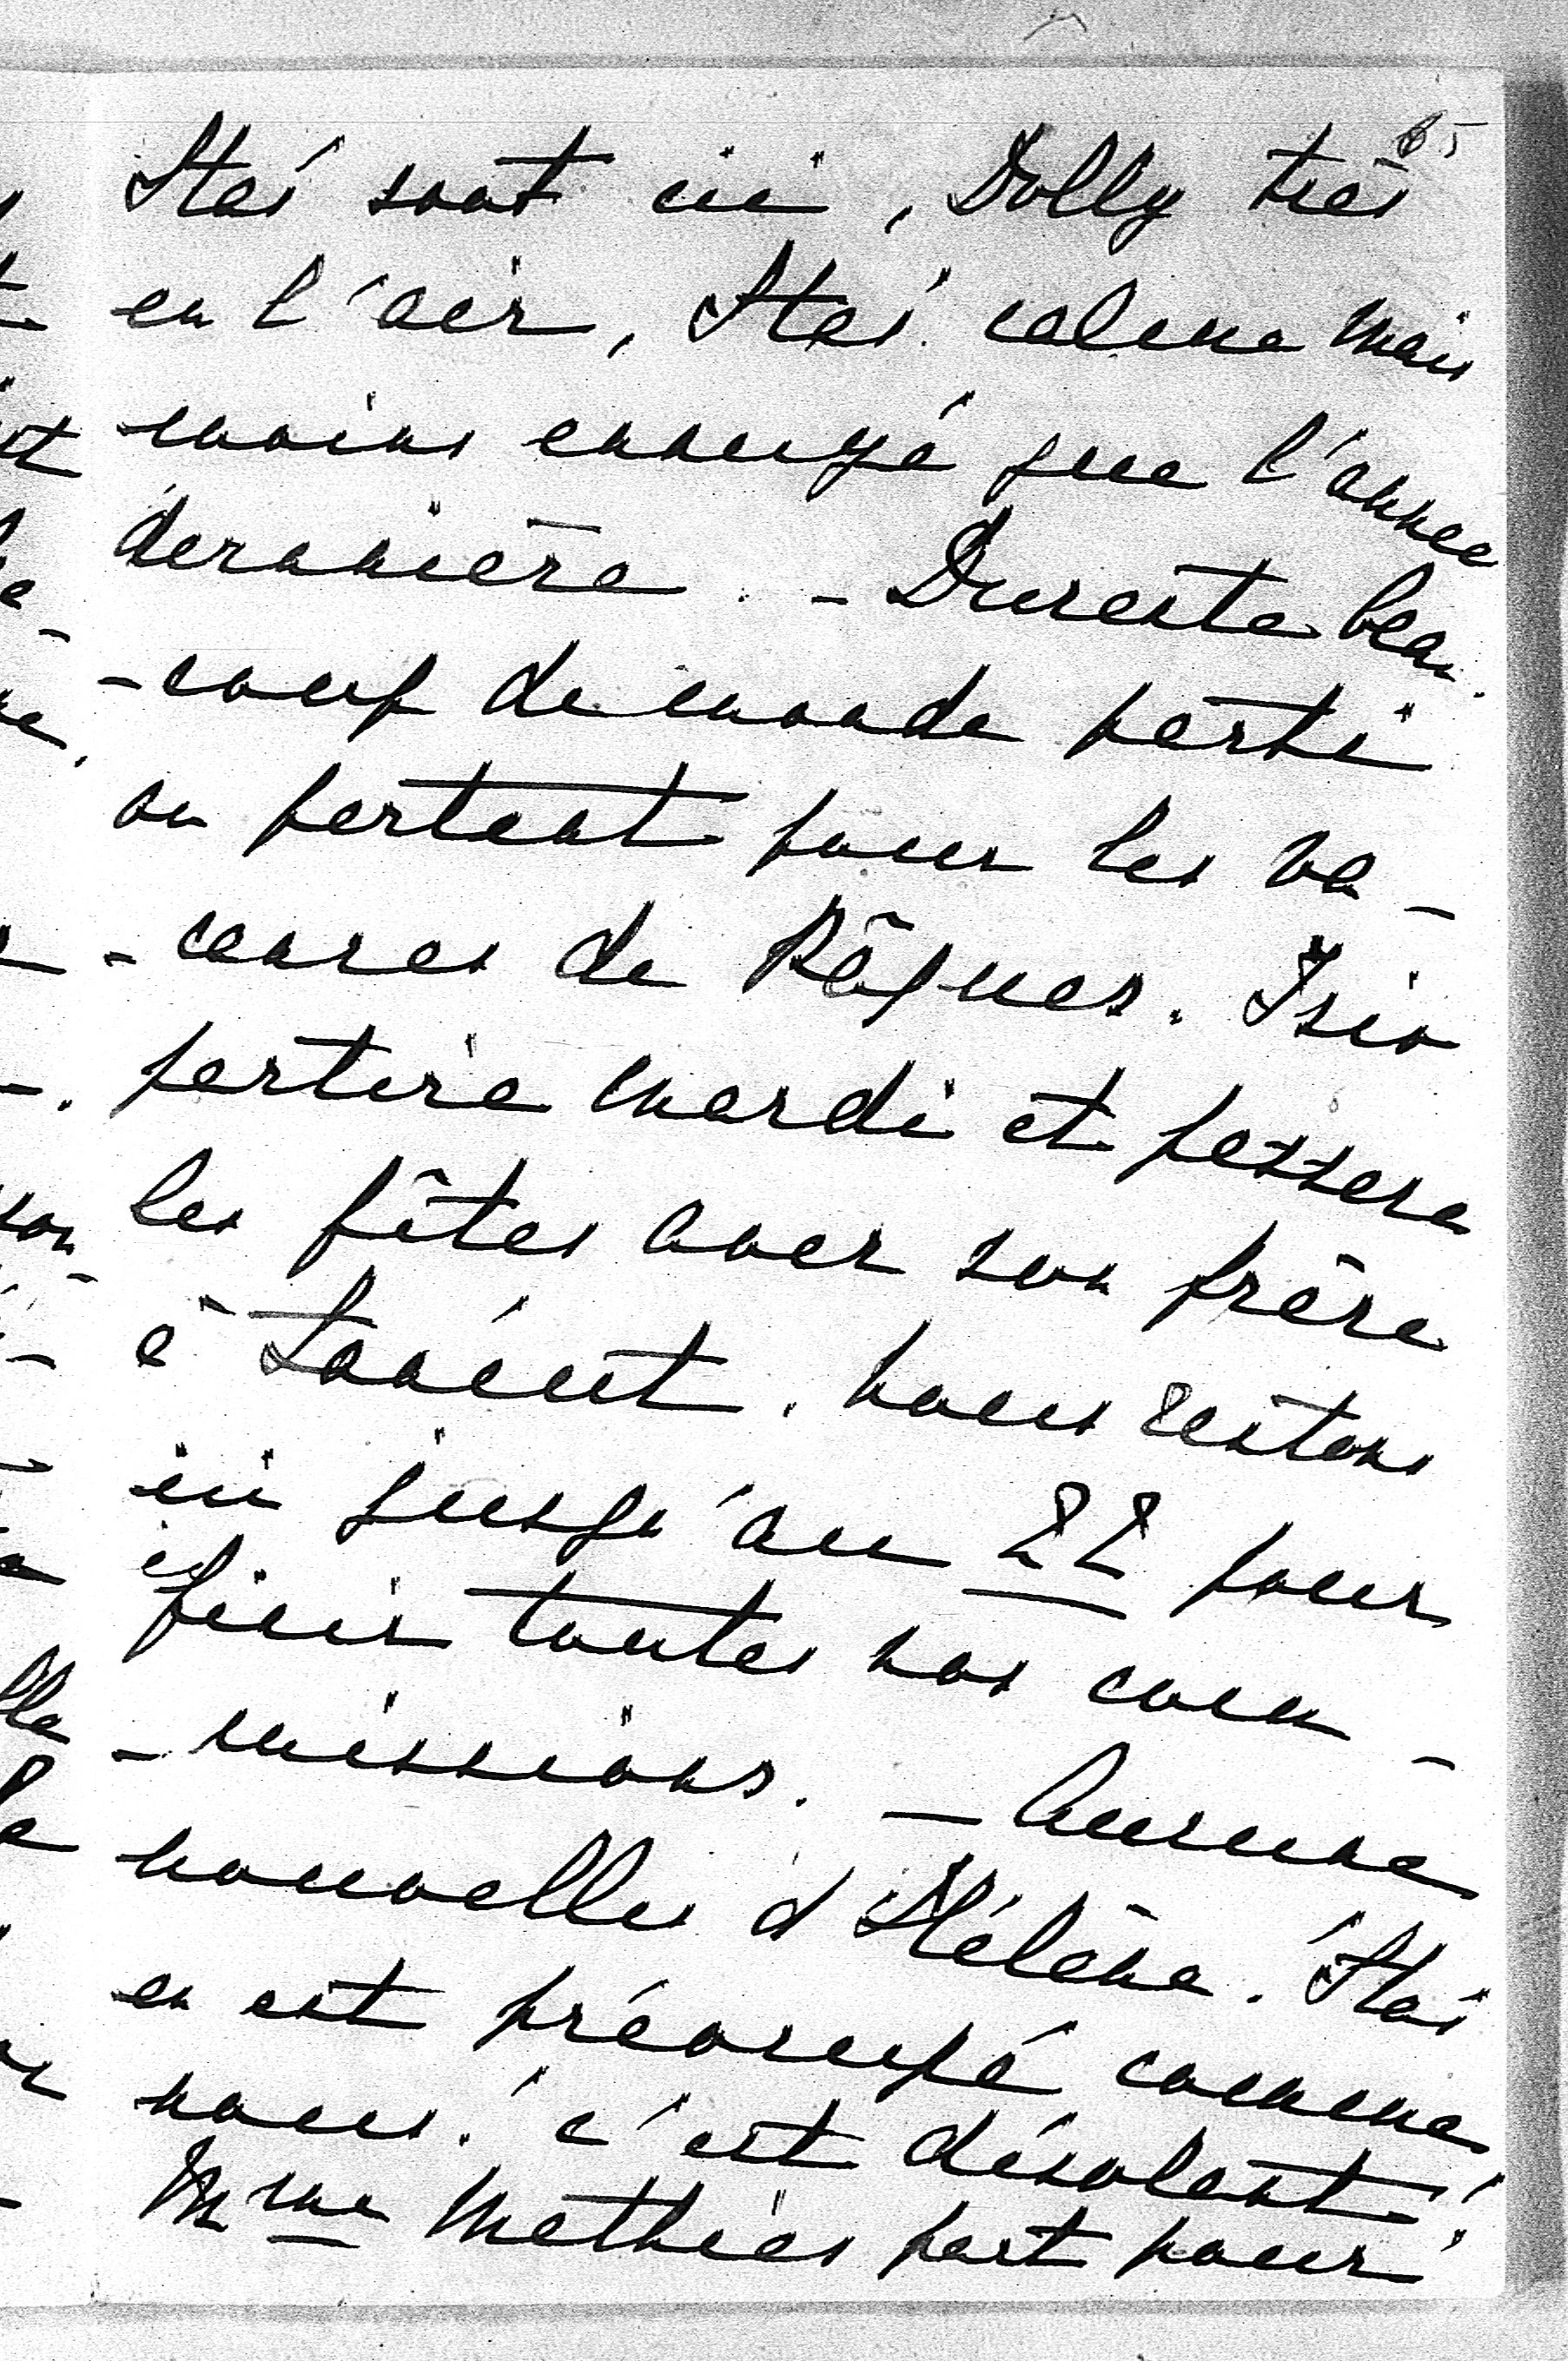 65
Staś sont ici, Dolly très
en l'air, Staś calme mais
moins ennuyé que l'année
dernière. - Dureste beau-
-coup de monde parti
ou partant pour les va-
-cances de Pâques. Isio
partira mardi et passera
les fêtes avec son frère
à Łańcut. Nous restons
ici jusqu'au 22 pour
finir toutes nos com-
-missions. - Aucune
nouvelles d'Hélène. Staś
en est préoccupé comme
nous. c'est désolant!
Mme Mathias part pour